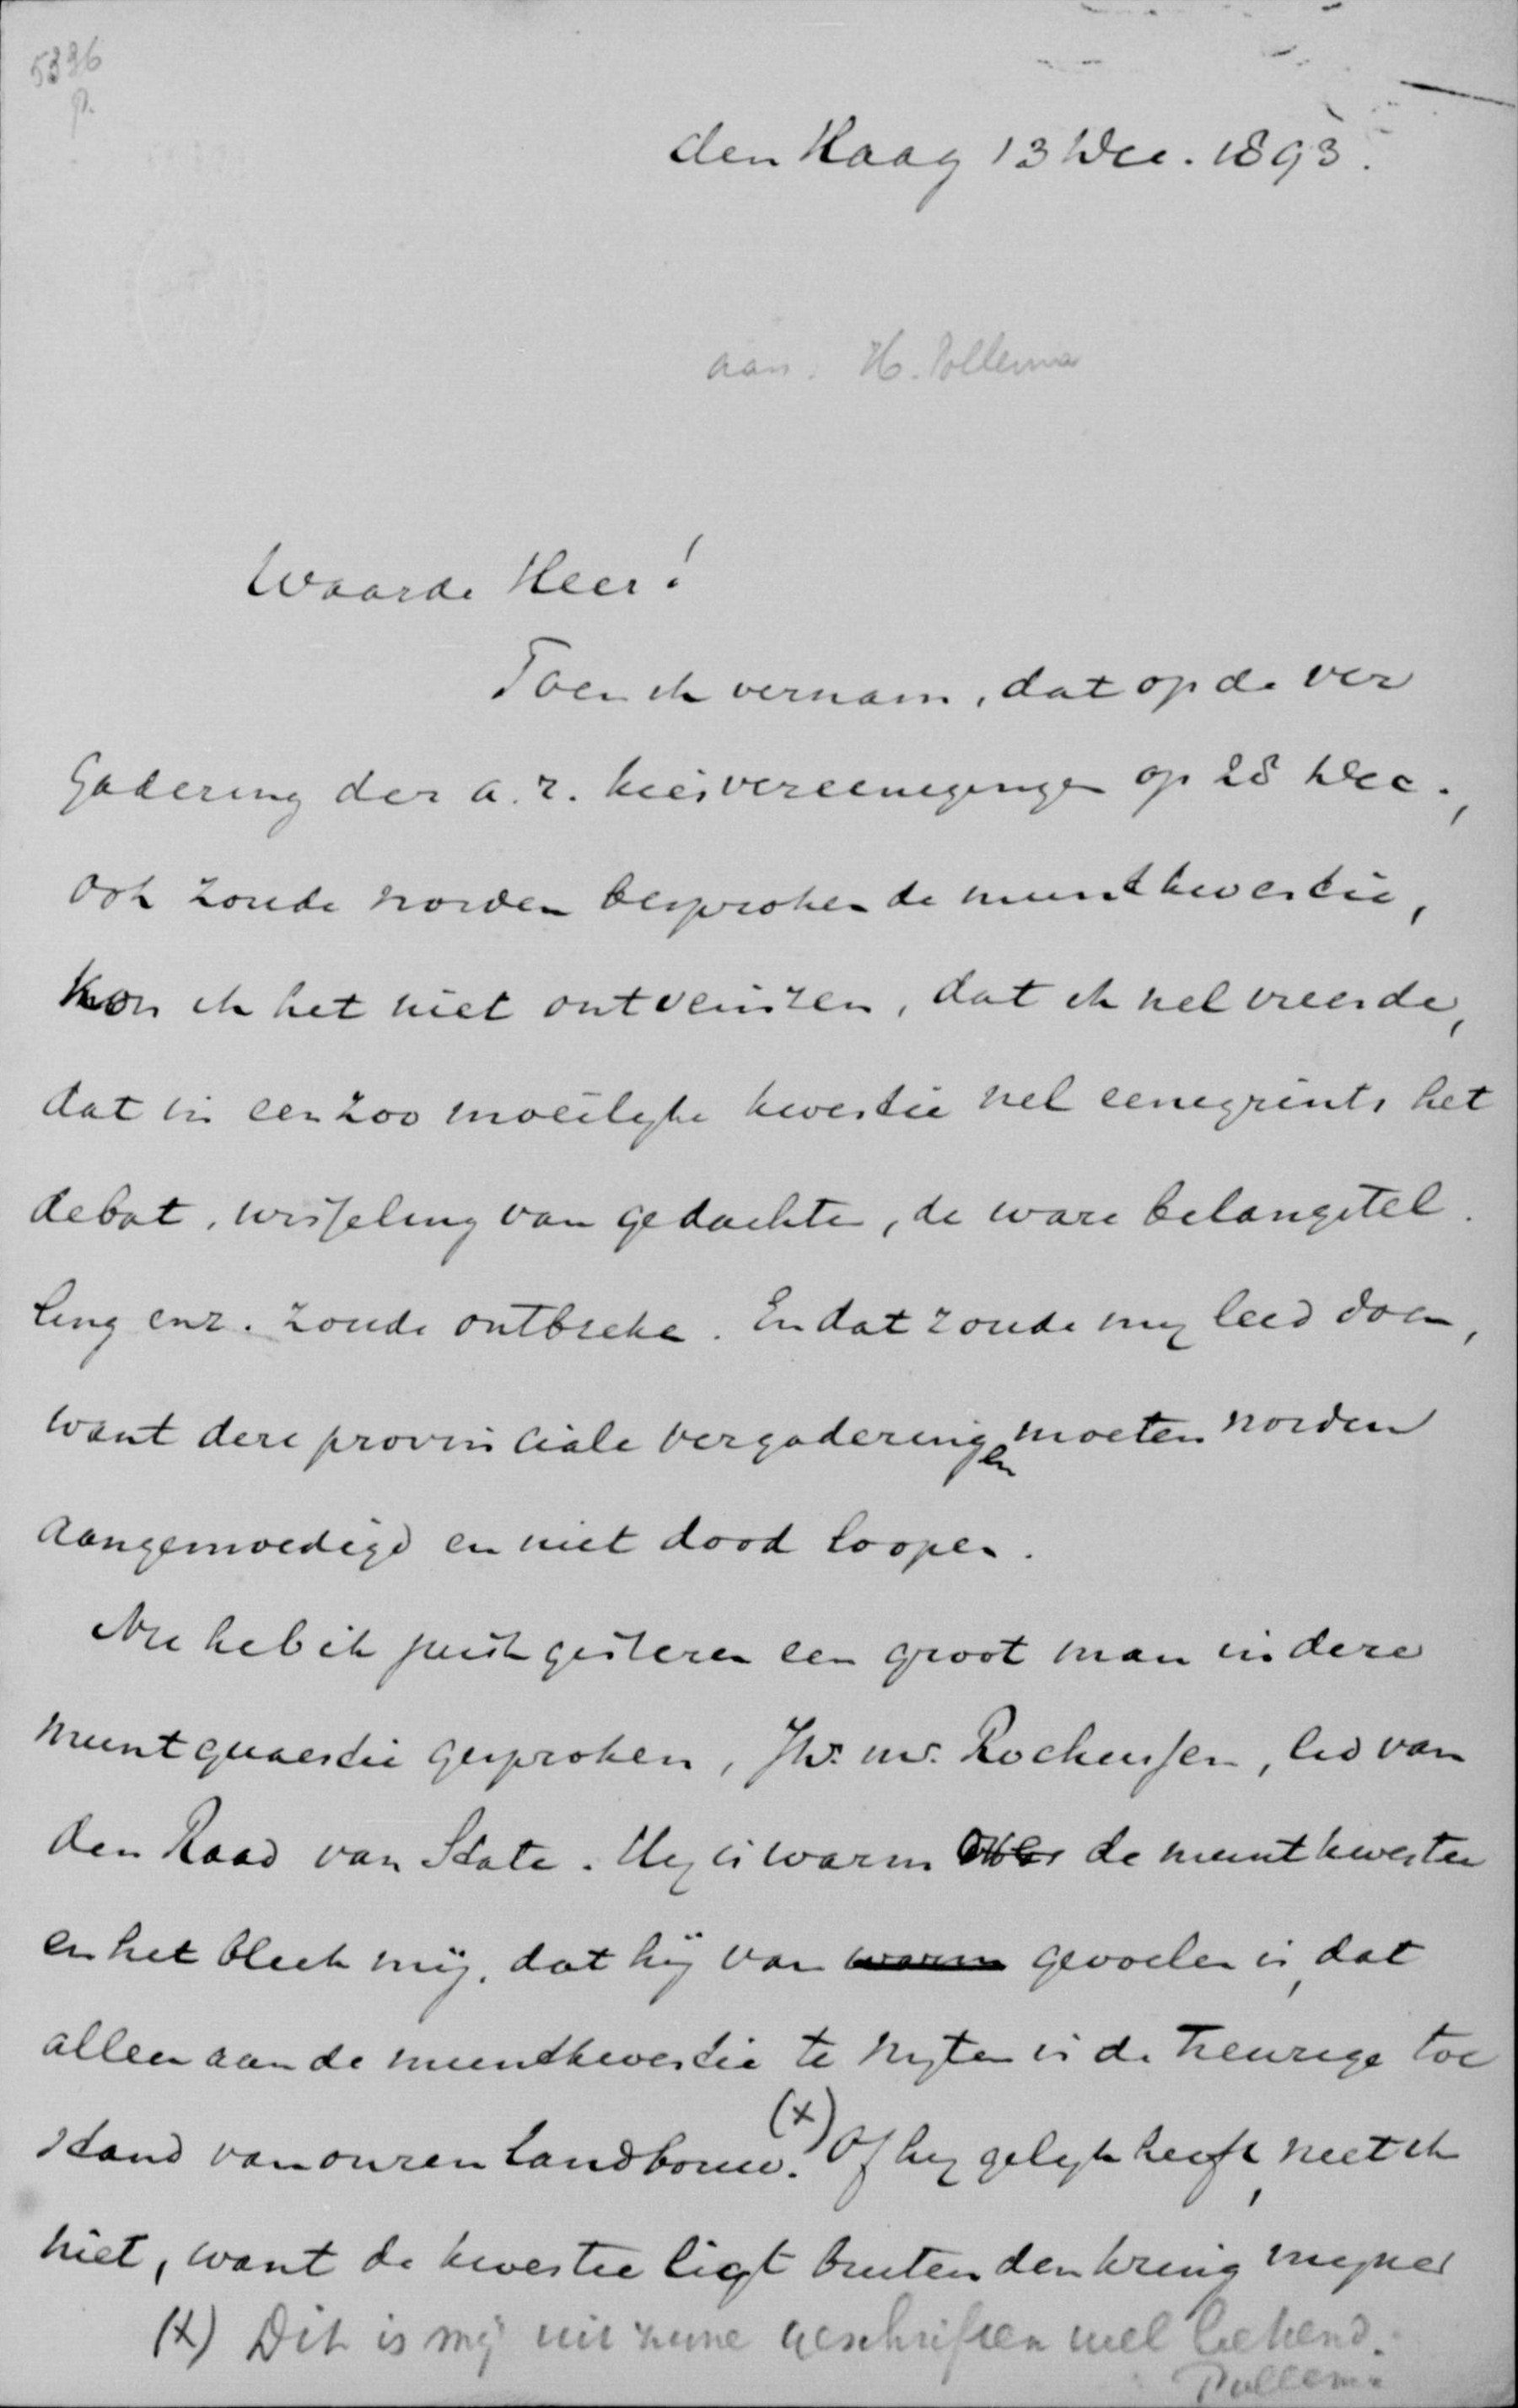 5396
p.
den Haag 13 Dec. 1893.
aan: H. Pollema
Waarde Heer!
Toen ik vernam, dat op de ver
gadering der a. r. kiesvereenigingen op 28 Dec.,
ook zoude worden besproken de muntkwestie,
kon ik het niet ontveinzen, dat ik wel vreesde,
dat in een zoo moeilijke kwestie wel eenigzints het
debat, wisseling van gedachten, de ware belangstel
ling enz. zoude ontbreken. En dat zoude mij leed doen,
want deze provinciale vergaderingen moeten worden
aangemoedigd en niet dood loopen.
Nu heb ik juist gisteren een groot man in deze
muntquaestie gesproken, Jhr. mr. Rochussen, lid van
den Raad van State. Hij is warm over de muntkwestie
en het bleek mij, dat hij van warm gevoelen is, dat
alleen aan de muntkwestie te wijten is de treurige toe
stand van onzen landbouw. (x) Of hij gelijk heeft, weet ik
niet, want de kwestie ligt buiten den kring mijner
(x) Dit is mij uit zijne geschriften wel bekend.
Pollema